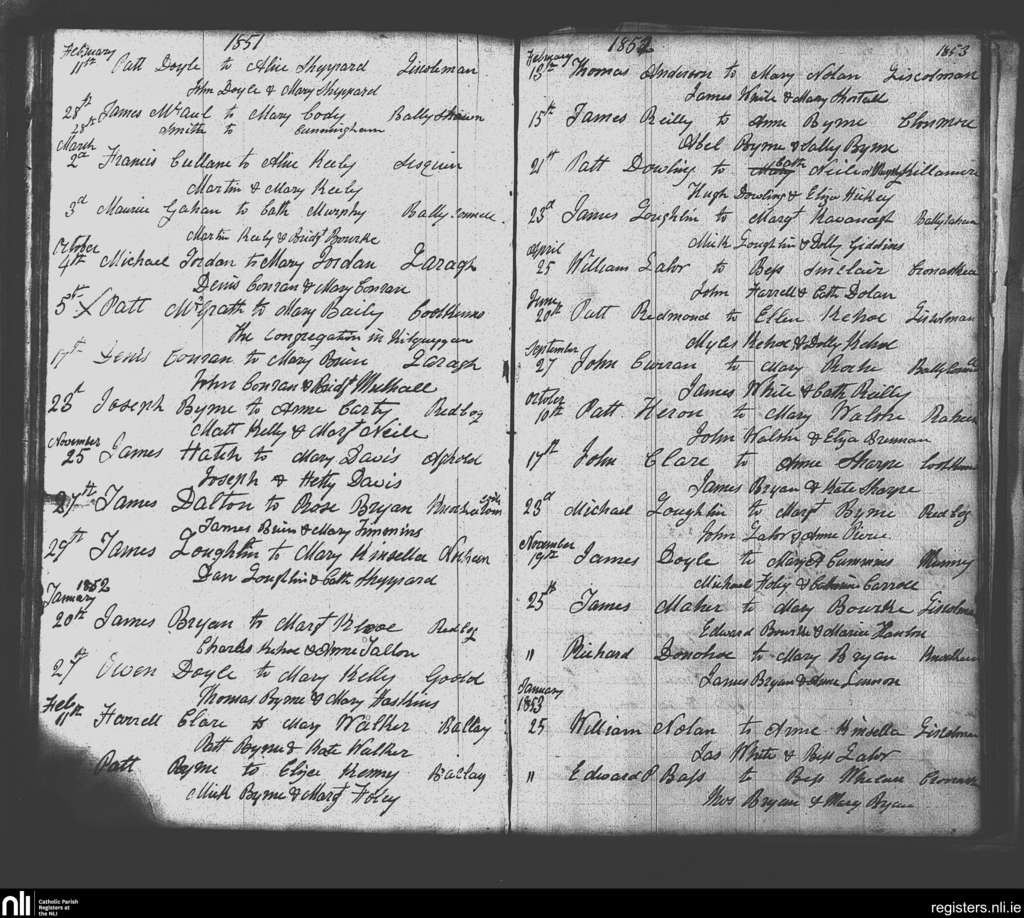 1851
February
11th Patt Doyle to Alice Sheppard Liscolman
John Doyle & Mary Sheppard
28th James McAul to Mary Cody Ballyshawn
28th Smith to Cunningham
March
2d Francis Cullane to Alice Keely
Martin & Mary Keely
3d Maurice Gahan to Cath Murphy
Martin Keely & Bridgt Bourke
October
4th Michael Jordan to Mary Jordan Laragh
Denis Conran & Mary Conran
5th X Patt McGrath to Mary Baily
The Congregation in
17th Denis Conran to Mary Laragh
John Conran & Bridgt Mulhall
23d Joseph Byrne to Anne Carty Redbog
Matt Kelly & Margt Neile
November
25 James Hatch to Mary Davis Aghold
Joseph & Hetty Davis
27th James Dalton to Rose Bryan
James & Mary Timmins
29th James Loughlin to Mary Kinsella
Dan Loughlin & Cath Sheppard
1852
January
20th James Bryan to Margt Kehoe Redbog
Charles Kehoe & Anne Fallon
27th Owen Doyle to Mary Kelly
Thomas Byrne & Mary Hoskins
Feb
11th Farrell Clare to Mary Walker Ballay
Patt Byrne & Kate Walker
Patt Byrne to Eliza Kenny Ballay
Mick Byrne & Margt Foley
1852
1853
February
13th Thomas Anderson to Mary Nolan Liscolman
James White & Mary Shortall
15th James Reilly to Anne Byrne Clonmore
Abel Byrne & Sally Byrne
21st Patt Dowling to Cath Neil
Hugh Dowling & Eliza Hickey
23d James Loughlin to Margt Kavanagh
Mick Loughlin & Dolly Giddins
April
25 William Lalor to Bess Sinclair
John Farrell & Cath Dolan
June
20th Patt Redmond to Ellen Kehoe Liscolman
Myles Kehoe & Dolly Kehoe
September
27 John Curran to Mary Roche
James White & Cath Reilly
October
10th Patt Heron to Mary Walshe
John Walshe & Eliza Brennan
17th John Clare to Anne Sharpe
James Bryan & Kate Sharpe
23d Michael Loughlin to Margt Byrne Redbog
John Lalor & Anne Pierce
November
19th James Doyle to Mary Cummins
Michael Foley & Catherine Carroll
25th James Maher to Mary Bourke Liscolman
Edward Bourke & Maria Hanlon
" Richard Donohoe to Mary Bryan
James Bryan & Anne Lennon
January
1853
25 William Nolan to Anne Kinsella Liscolman
Jas White & Bess Lalor
" Edward P Bass to Bess Whelan
Thos Bryan & Mary Bryan
nli Catholic Parish
Registers at
the NLI
registers.nli.ie